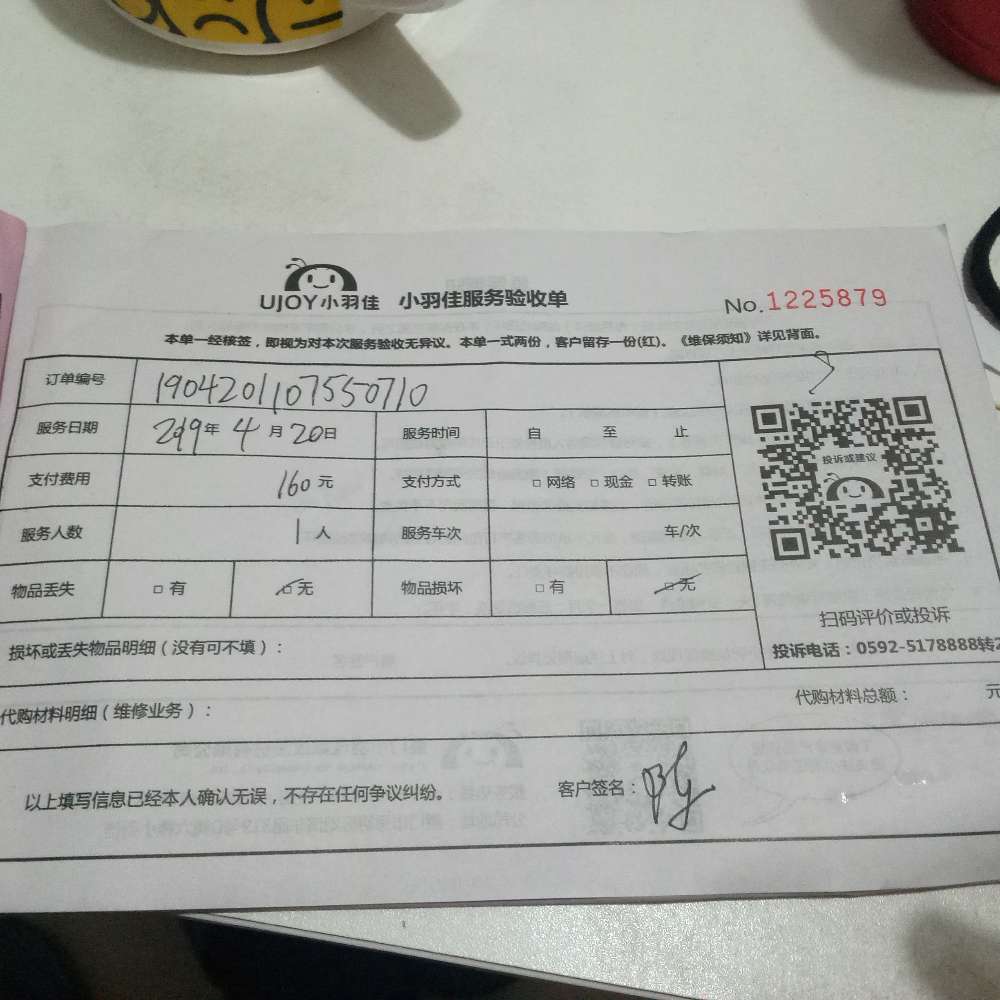 UJOY小羽佳 小羽佳服务验收单 No.1225879
本单一经核签，即视为对本次服务验收无异议。本单一式两份，客户留存一份(红)。《维保须知》详见背面。
订单编号 1904201107550710
服务日期 2019年4月20日 服务时间 自 至 止
支付费用 160元 支付方式 □网络 □现金 □转账
服务人数 1人 服务车次 车/次
物品丢失 □有 □无 物品损坏 □有 □无
投诉或建议
扫码评价或投诉
投诉电话：0592-5178888转2
损坏或丢失物品明细（没有可不填）：
代购材料明细（维修业务）： 代购材料总额： 元
以上填写信息已经本人确认无误，不存在任何争议纠纷。 客户签名：